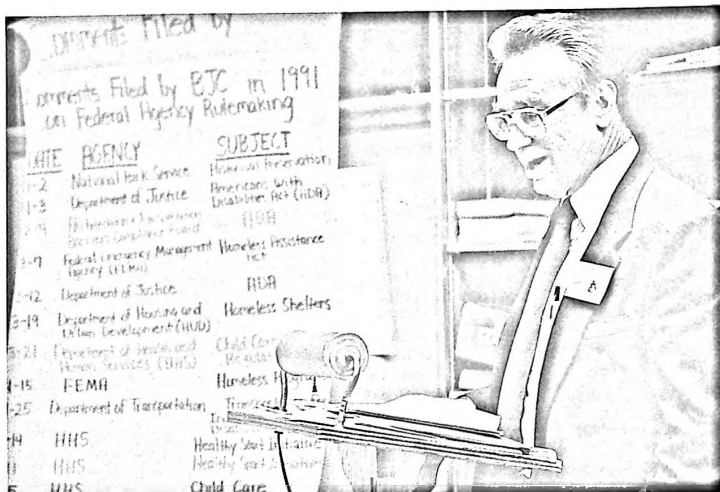 omments Filed by
omments Filed by BJC in 1991
on Federal Agency Rulemaking
DATE AGENCY SUBJECT
1-2 National Park Service Historical Preservation
1-3 Department of Justice Americans With
Disabilities Act (ADA)
Compliance Board ADA
3-7 Federal Emergency Management Homeless Assistance
Agency (FEMA) Act
3-12 Department of Justice ADA
3-19 Department of Housing and Homeless Shelters
Urban Development (HUD)
3-21 Department of Health and Child Care
Human Services (HHS)
1-15 FEMA Homeless
-25 Department of Transportation
-14 HHS Healthy Start Initiative
HHS Healthy Start
5 HHS Child Care